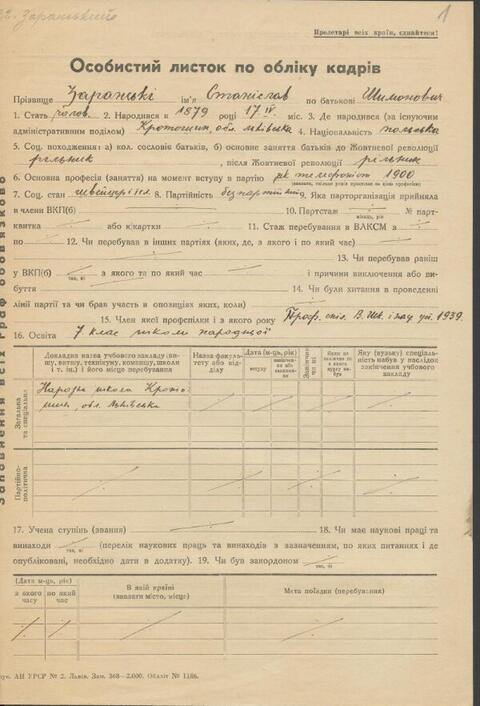 Заранський
1
Пролетарі всіх країн, єднайтеся!
Особистий листок по обліку кадрів
Прізвище Заранські ім'я Станіслав по батькові Шимонович
1. Стать чолов. 2. Народився к 1879 році 17 IV міс. 3. Де народився (за існуючим
адміністративним поділом) Кротошин, обл. Львівська 4. Національність польська
5. Соц. походження: а) кол. сословіє батьків, б) основне заняття батьків до Жовтневої революції
рільник , після Жовтневої революції рільник
6. Основна професія (заняття) на момент вступу в партію 1900
7. Соц. стан 8. Партійність безпартійний 9. Яка парторганізація прийняла
в члени ВКП(б) 10. Партстаж № парт-
місяць, рік
квитка або к/картки 11. Стаж перебування в ВЛКСМ з
по 12. Чи перебував в інших партіях (яких, де, з якого і по який час)
13. Чи перебував раніш
у ВКП(б) з якого та по який час і причини виключення або ви-
так, ні
буття 14. Чи були хитання в проведенні
лінії партії та чи брав участь в опозиціях яких, коли)
15. Член якої профспілки і з якого року Проф. спіл. В. Шк. і нау. уп. 1939.
16. Освіта 7 клас школи народної
Докладна назва учбового закладу (ви-
шу, втишу, технікуму, комвишу, школи
і т. ін.) і його місце перебування
Назва факуль-
тету або від-
ділу
Дата (м-ць, рік)
вступу
закінчення
Яку (вузьку) спеціаль-
ність набув у наслідок
закінчення учбового
закладу
Загальна
та спеціальна
Народна школа Крото-
шин, обл. Львівська
Партійно-
політична
17. Учена ступінь (звання) 18. Чи має наукові праці та
винаходи (перелік наукових праць та винаходів з зазначенням, по яких питаннях і де
так, ні
опубліковані, необхідно дати в додатку). 19. Чи був закордоном
так, ні
(Дата м-ць, рік)
з якого
часу
по який
час
В якій країні
(вказати місто, місце)
Мета поїздки (перебування)
Друк. АН УРСР № 2. Львів. Зам. 368—2.000. Обліт № 1186.
Заповнення всіх граф обов'язково